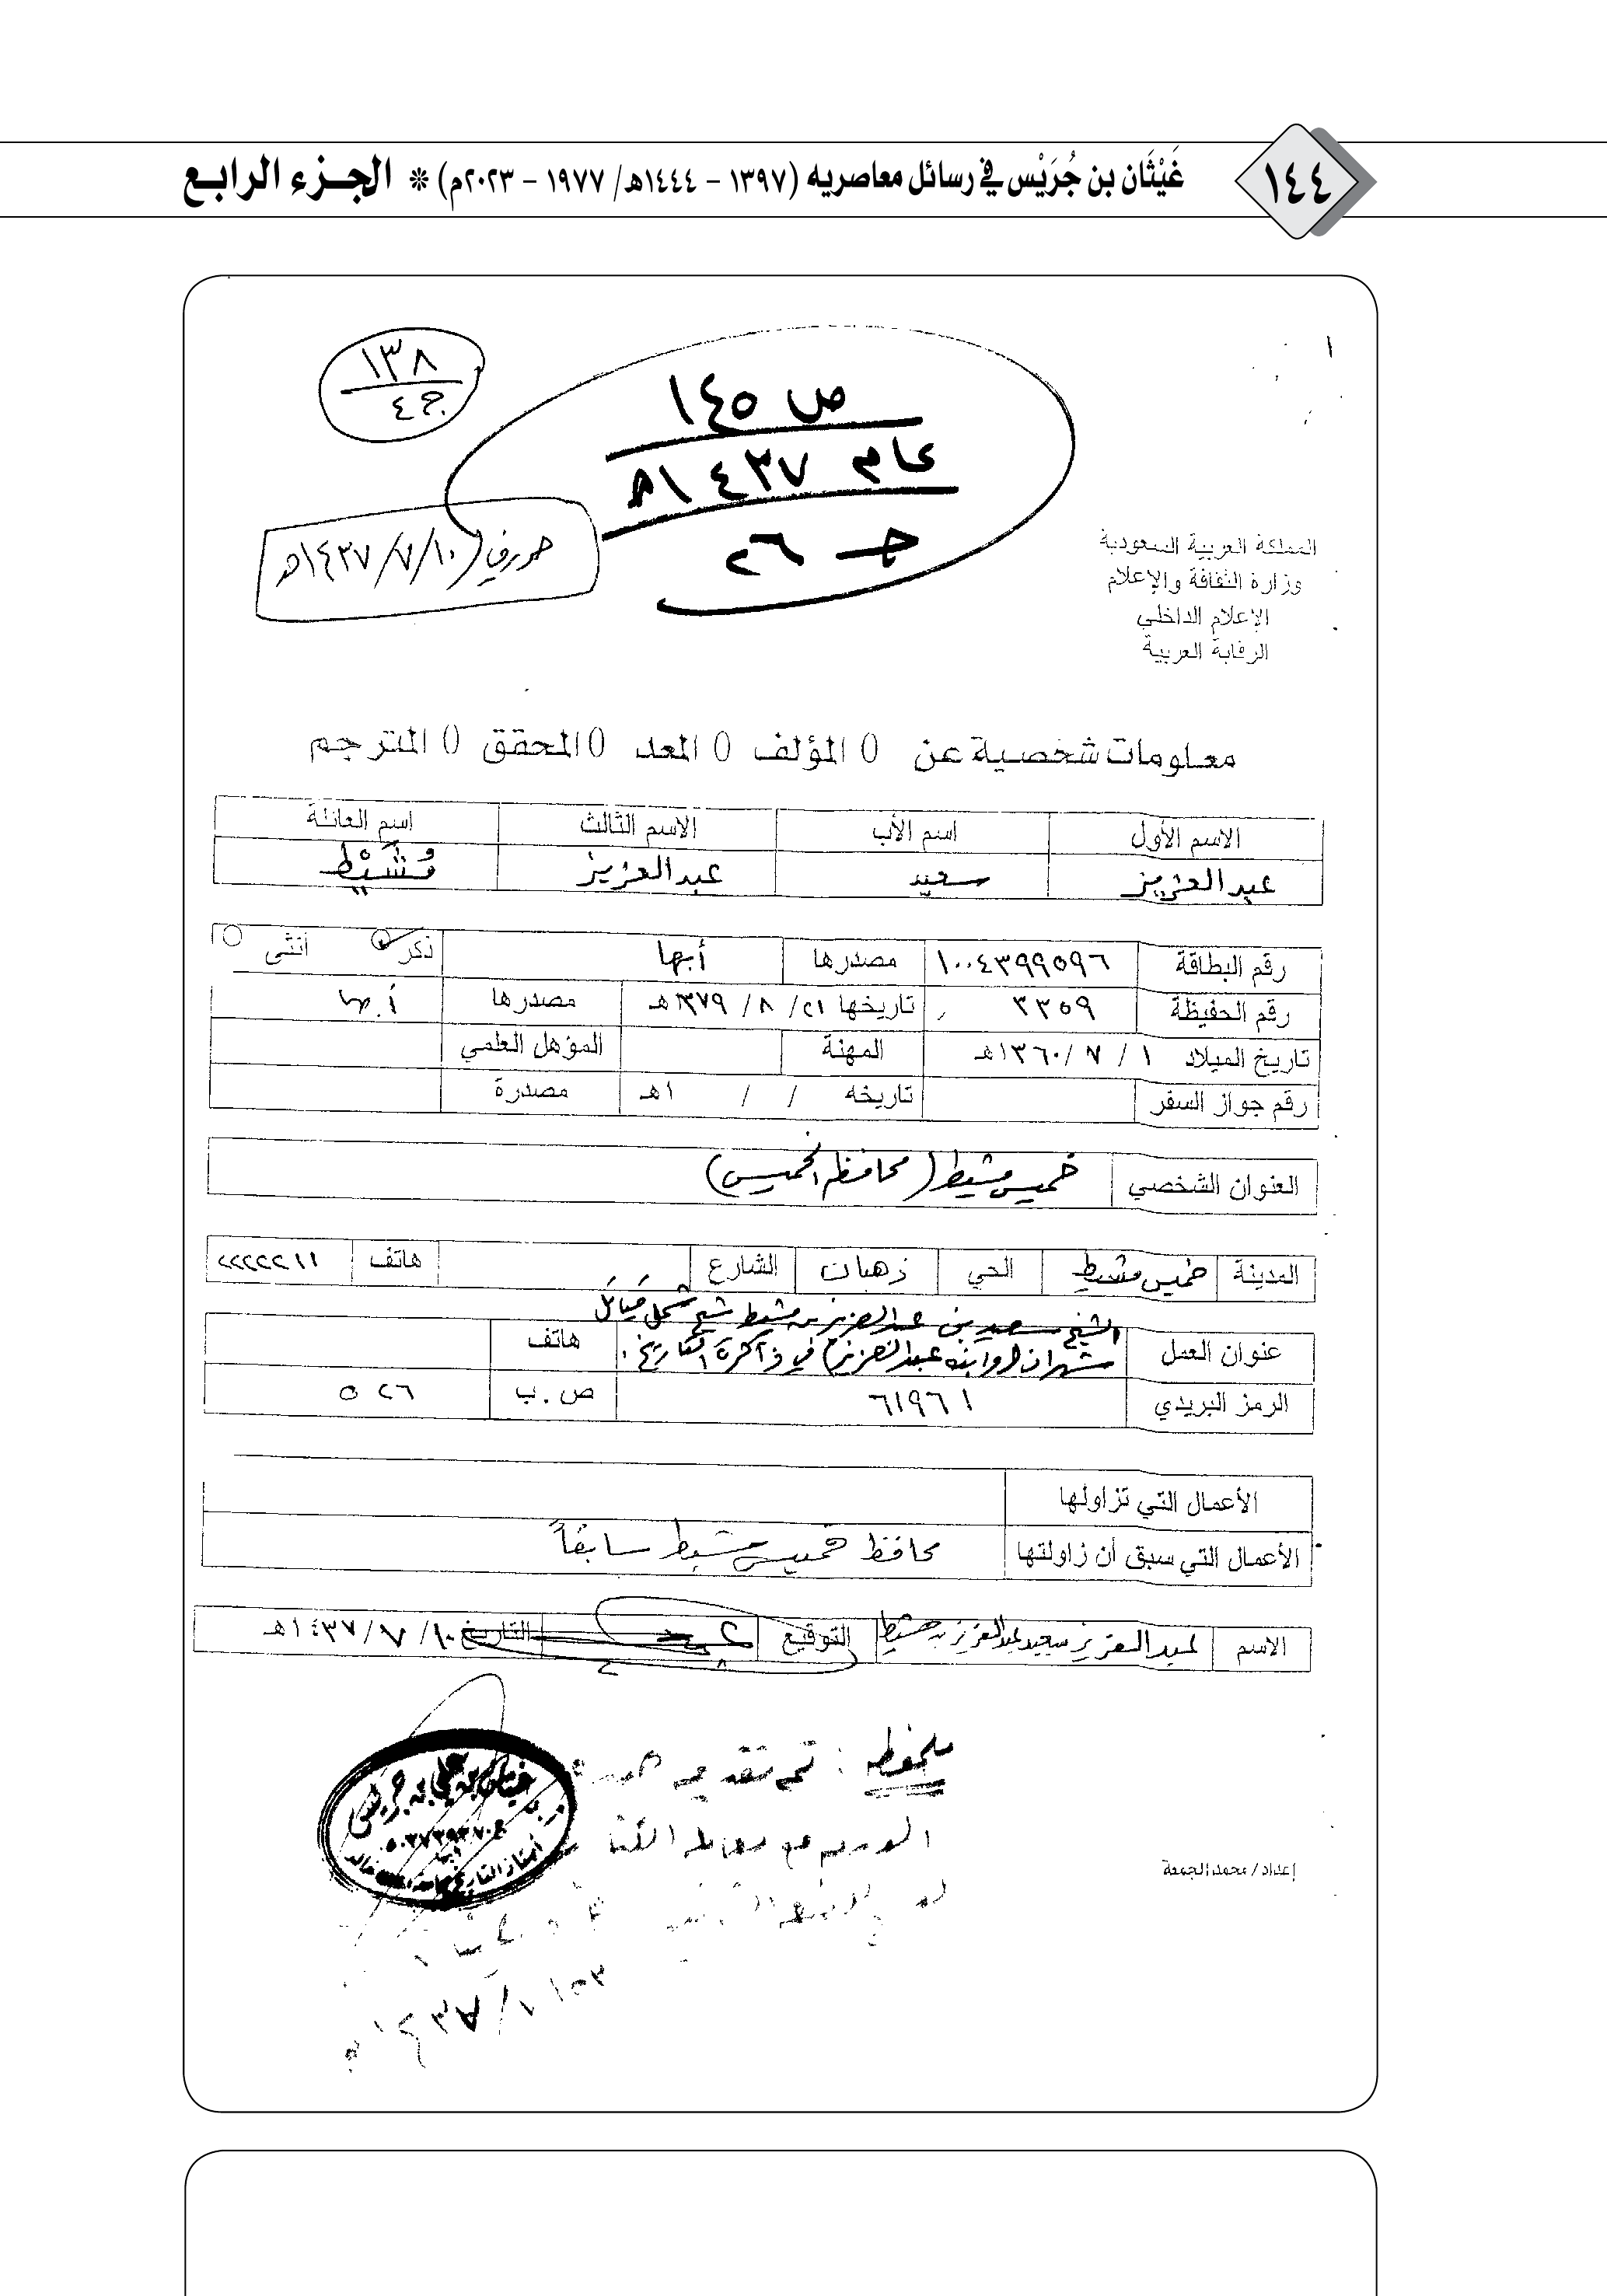 ١٤٤
غَيْثَان بن جُرَيْس في رسائل معاصريه (١٣٩٧ - ١٤٤٤هـ/ ١٩٧٧ - ٢٠٢٣م) * الجزء الرابع
١٣٨
ج٤
ص ١٤٥
عام ١٤٣٧هـ
جـ ٢٦
(١٠/٧/١٤٣٧هـ
المملكة العربية السعودية
وزارة الثقافة والإعلام
الإعلام الداخلي
الرقابة العربية
معلومات شخصية عن () المؤلف () المعد () المحقق () المترجم
الاسم الأول اسم الأب الاسم الثالث اسم العائلة
عبدالعزيز سعيد عبدالعزيز مُشَيْط
رقم البطاقة ١٠٠٤٣٩٩٥٩٦ مصدرها أبها ذكر أنثى
رقم الحفيظة ٣٣٥٩ تاريخها ٢١/ ٨/ ١٣٧٩هـ مصدرها أبها
تاريخ الميلاد ١ / ٧ /١٣٦٠هـ المهنة المؤهل العلمي
رقم جواز السفر تاريخه / / ١هـ مصدرة
العنوان الشخصي خميس مشيط (محافظ الخميس)
المدينة خميس مشيط الحي ذهبان الشارع هاتف ٢٢٢٢٢١١
الشيخ سعيد بن عبدالعزيز بن مشيط شيخ شمل قبائل
عنوان العمل شهران (وابنه عبدالعزيز) في ذاكرة التاريخ. هاتف
الرمز البريدي ٦١٩٦١ ص.ب ٥٢٦
الأعمال التي تزاولها
الأعمال التي سبق أن زاولتها محافظ خميس مشيط سابقاً
الاسم عبدالعزيز سعيد عبدالعزيز بن مشيط التوقيع التاريخ ١٠/ ٧/ ١٤٣٧هـ
ملحوظه : تم تقديم
مع معاملة
إعداد/ محمد الجمعة